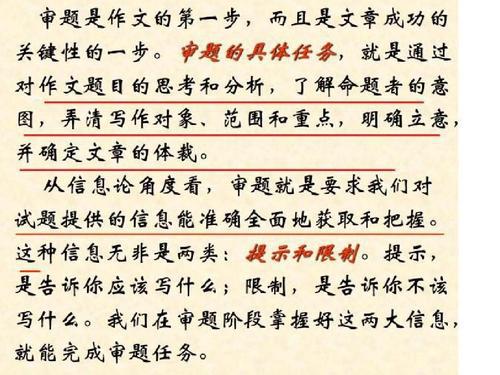 审题是作文的第一步，而且是文章成功的
关键性的一步。审题的具体任务，就是通过
对作文题目的思考和分析，了解命题者的意
图，弄清写作对象、范围和重点，明确立意，
并确定文章的体裁。
从信息论角度看，审题就是要求我们对
试题提供的信息能准确全面地获取和把握。
这种信息无非是两类：提示和限制。提示，
是告诉你应该写什么；限制，是告诉你不该
写什么。我们在审题阶段掌握好这两大信息，
就能完成审题任务。